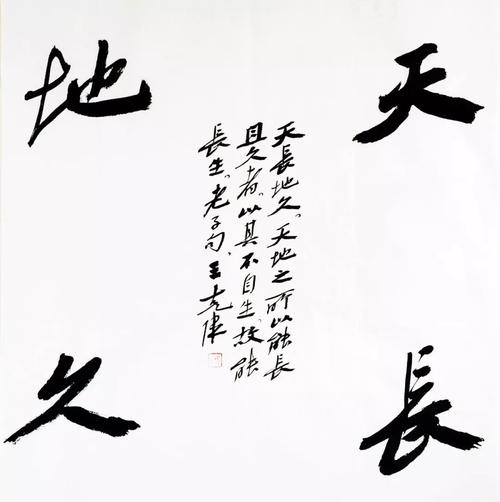 天長
地久
天長地久。天地之所以能長
且久者。以其不自生。故能
長生。老子句。王克津